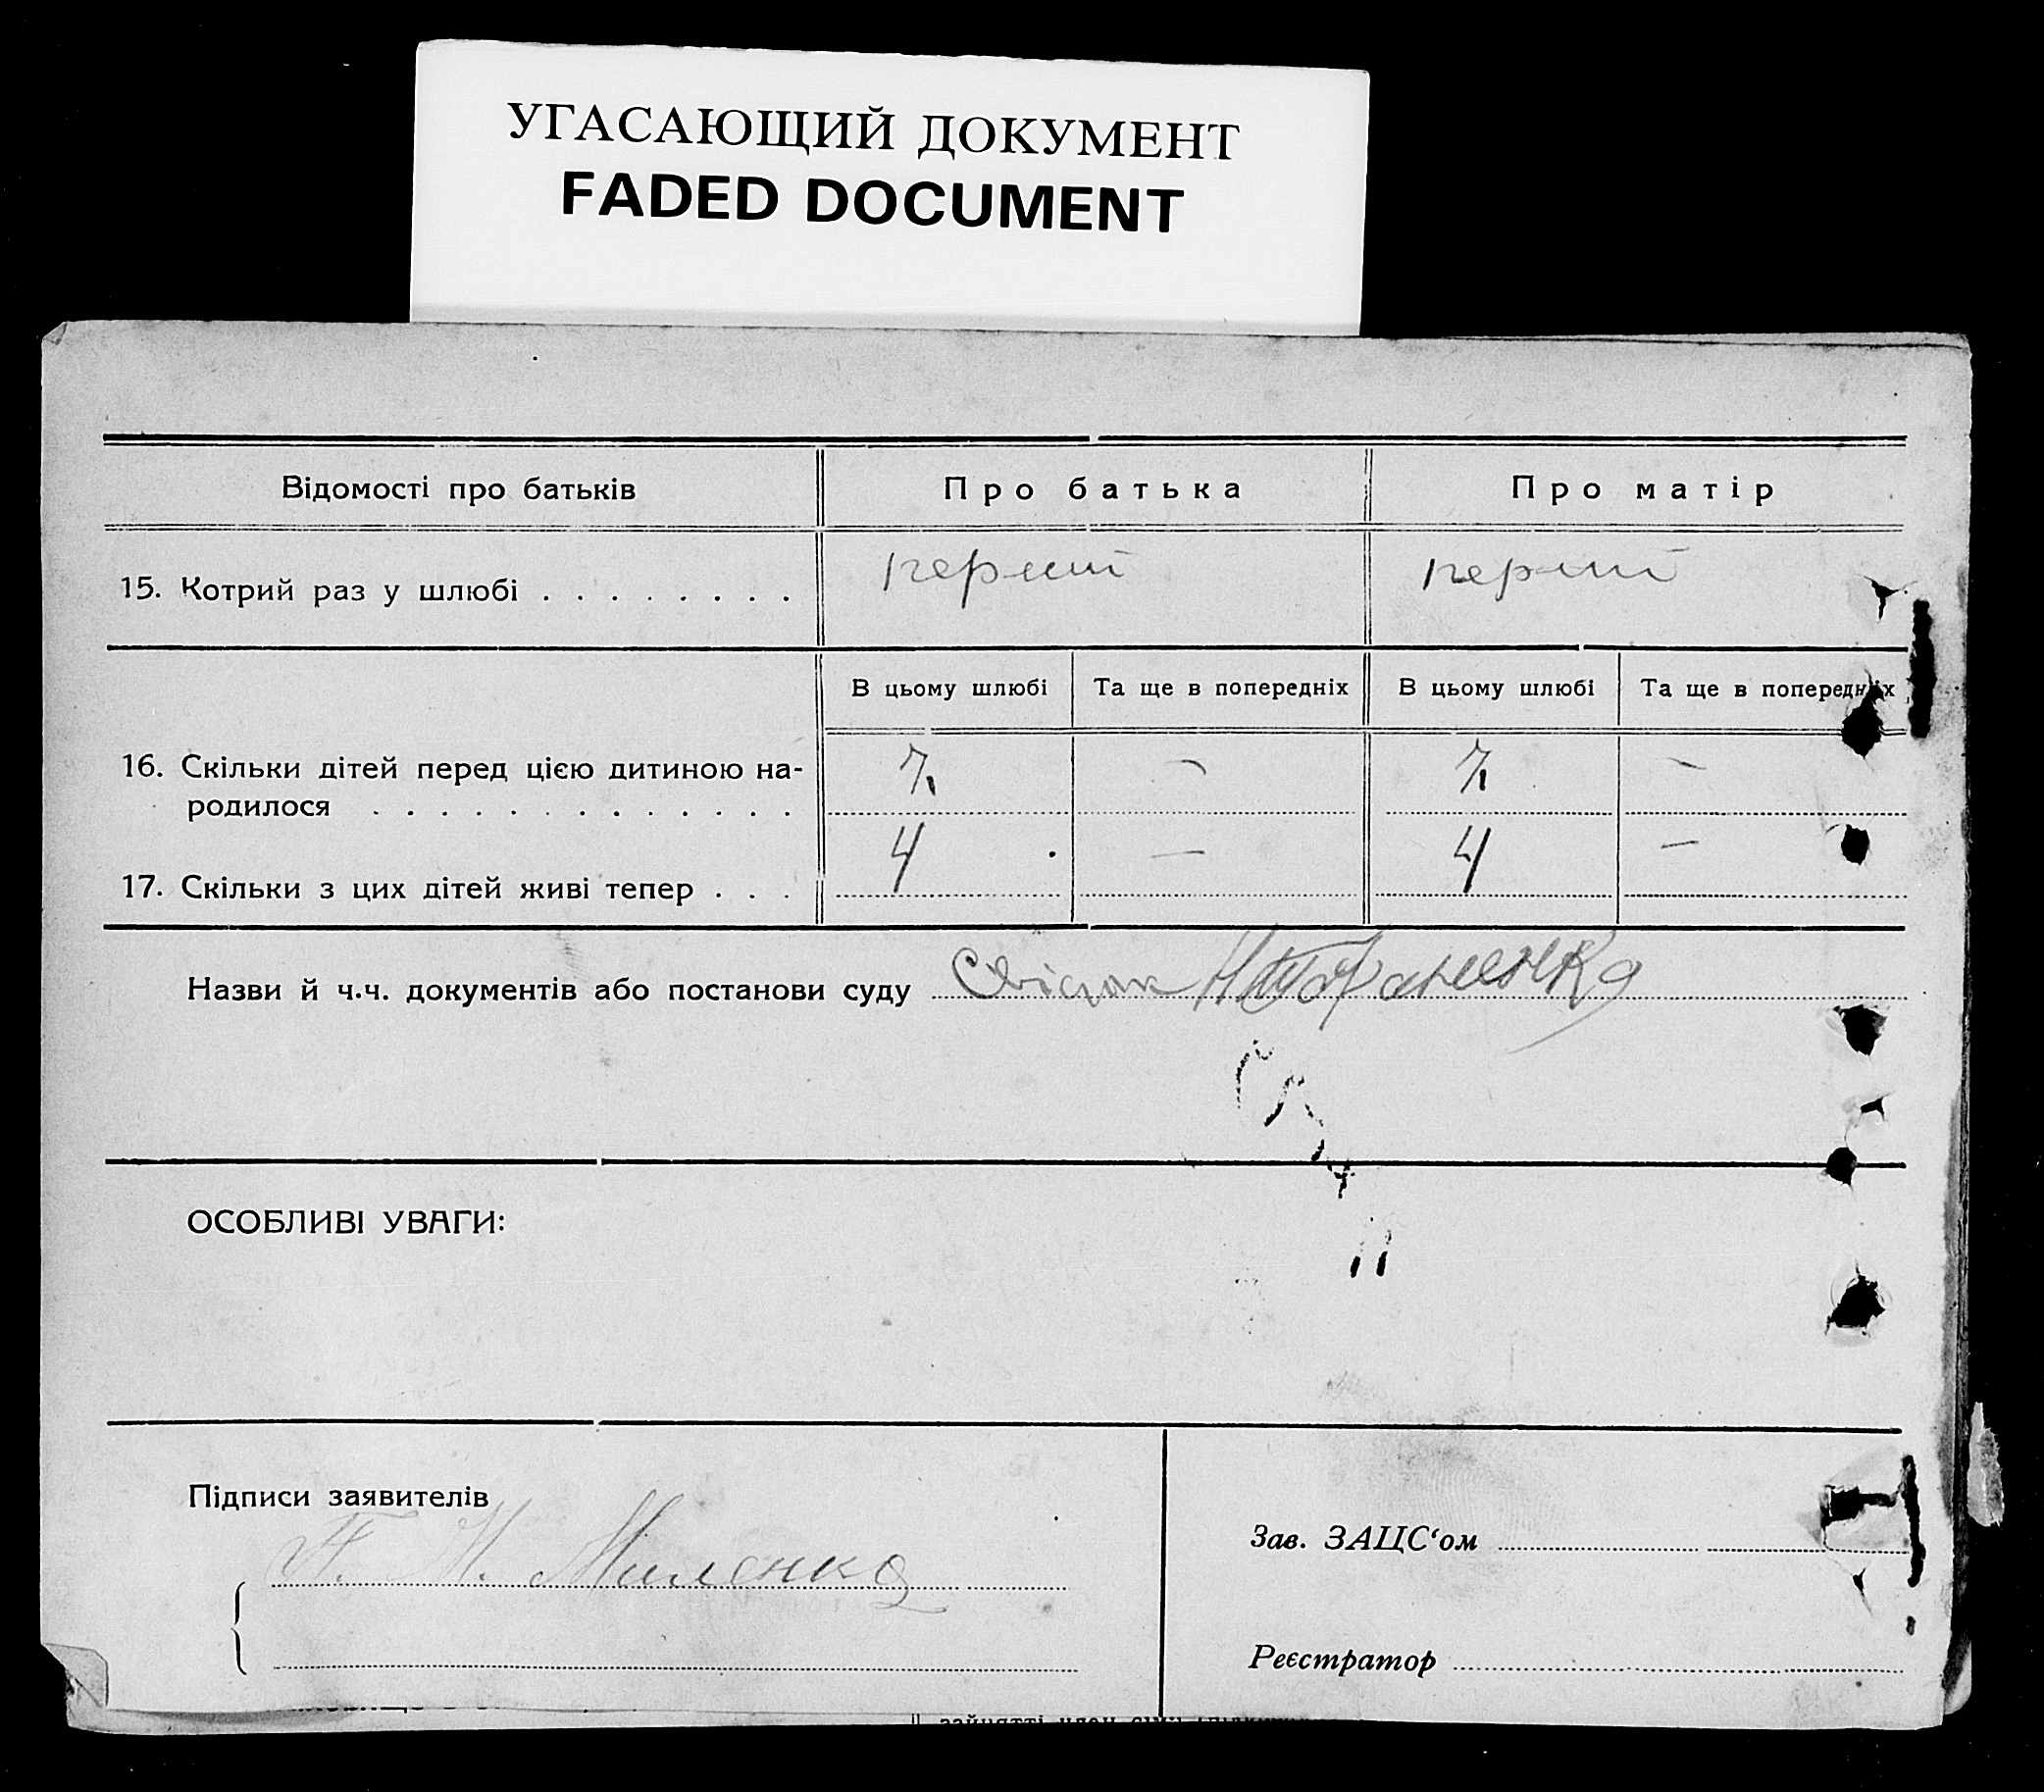 УГАСАЮЩИЙ ДОКУМЕНТ
FADED DOCUMENT
Відомості про батьків
Про батька
Про матір
15. Котрий раз у шлюбі . . . . . . . .
перший
перший
В цьому шлюбі
Та ще в попередніх
В цьому шлюбі
Та ще в попередніх
16. Скільки дітей перед цією дитиною на-
родилося . . . . . . . . . . . . .
7
—
7
—
17. Скільки з цих дітей живі тепер . . .
4
—
4
—
Назви й ч.ч. документів або постанови суду
ОСОБЛИВІ УВАГИ:
Підписи заявителів
П. М. Миленко
Зав. ЗАЦС‘ом
Реєстратор